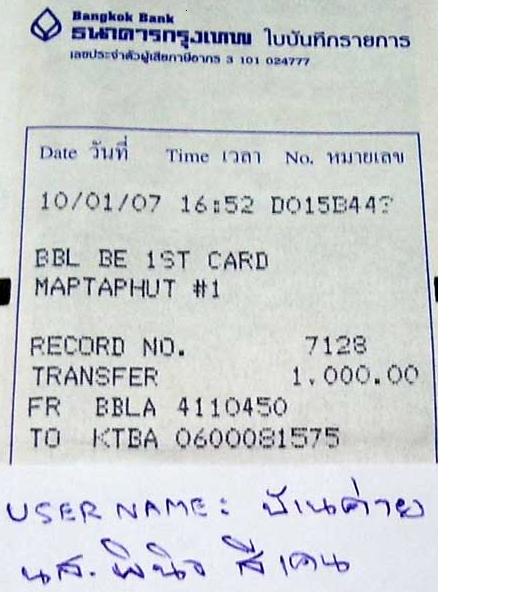 Bangkok Bank
ธนาคารกรุงเทพ ใบบันทึกรายการ
เลขประจำตัวผู้เสียภาษีอากร 3 101 024777
Date วันที่ Time เวลา No. หมายเลข
10/01/07 16:52 DO15B44?
BBL BE 1ST CARD
MAPTAPHUT #1
RECORD NO. 7128
TRANSFER 1,000.00
FR BBLA 4110450
TO KTBA 0600081575
USER NAME: บ้านค่าย
นส. พินิจ สีเคน